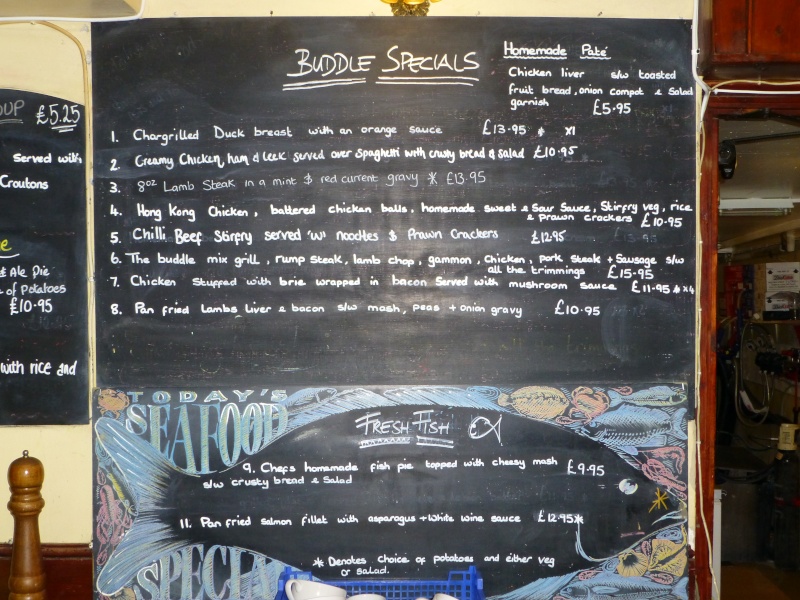 OUP £5.25
Served with
Croutons
& Ale Pie
e of Potatoes
£10.95
with rice and
BUDDLE SPECIALS
Homemade Paté
Chicken liver s/w toasted
fruit bread, onion compot & Salad
garnish £5.95 x1
1. Chargrilled Duck breast with an orange sauce £13.95 * x1
2. Creamy Chicken, ham & leek served over Spaghetti with crusty bread & salad £10.95
3. 8oz Lamb Steak in a mint & red currant gravy * £13.95
4. Hong Kong Chicken, battered chicken balls, homemade sweet & Sour Sauce, Stirfry veg, rice
& prawn crackers £10.95
5. Chilli Beef Stirfry served 'w' noodles & Prawn Crackers £12.95
6. The buddle mix grill, rump steak, lamb chop, gammon, Chicken, pork Steak + Sausage s/w
all the trimmings £15.95
7. Chicken Stuffed with brie wrapped in bacon Served with mushroom sauce £11.95 * x4
8. Pan fried Lambs liver & bacon s/w mash, peas + onion gravy £10.95
TODAY'S
SEAFOOD
FRESH FISH
9. Chefs homemade fish pie topped with cheesy mash £9.95
s/w crusty bread & Salad
11. Pan fried salmon fillet with asparagus + White wine sauce £12.95*
* Denotes choice of potatoes and either veg
or salad.
SPECIA